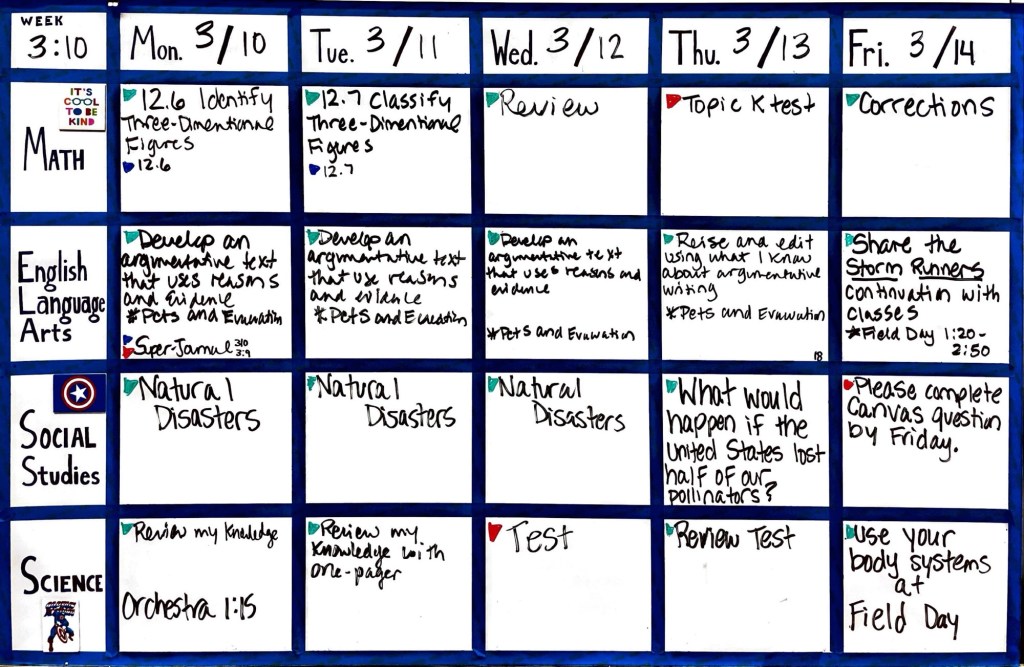 WEEK
3:10
Mon. 3/10
Tue. 3/11
Wed. 3/12
Thu. 3/13
Fri. 3/14
IT'S
COOL
TO BE
KIND
MATH
12.6 Identify
Three-Dimentionnal
Figures
12.6
12.7 Classify
Three-Dimentional
Figures
12.7
Review
Topic K test
Corrections
English
Language
Arts
Develop an
argmentative text
that uses reasons
and Evidence
*Pets and Evacuation
Super-Jarnul 3/10
3:9
Develop an
argmantative text
that use reasons
and evidence
*Pets and
Develop an
argumentative text
that uses reasons and
evidence
*Pets and
Reise and edit
using what I know
about argumentative
writing
*Pets and
18
Share the
Storm Runners
continuation with
classes
*Field Day 1:20-
2:50
SOCIAL
Studies
Natural
Disasters
Natural
Disasters
Natural
Disasters
What would
happen if the
United States lost
half of our
pollinators?
Please complete
Canvas question
by Friday.
SCIENCE
Review my Knowledge
Orchestra 1:15
Review my
Knowledge with
one-pager
Test
Review Test
Use your
body systems
at
Field Day